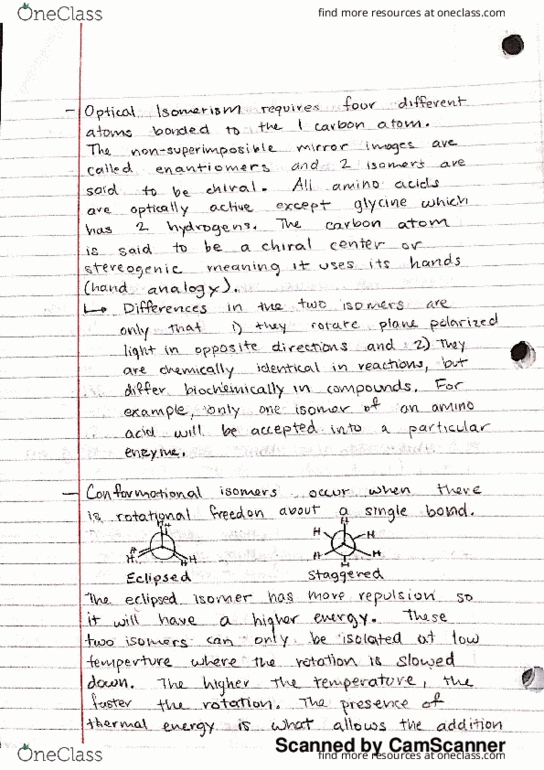 OneClass
find more resources at oneclass.com
- Optical Isomerism requires four different
atoms bonded to the 1 carbon atom.
The non-superimposible mirror images are
called enantiomers and 2 isomers are
said to be chiral. All amino acids
are optically active except glycine which
has 2 hydrogens. The carbon atom
is said to be a chiral center or
stereogenic meaning it uses its hands
(hand analogy).
↳ Differences in the two isomers are
only that 1) they rotate plane polarized
light in opposite directions and 2) They
are chemically identical in reactions, but
differ biochemically in compounds. For
example, only one isomer of an amino
acid will be accepted into a particular
enzyme.
- Conformational isomers occur when there
is rotational freedon about a single bond.
H H H H
H H H H H H
Eclipsed Staggered
The eclipsed isomer has more repulsion so
it will have a higher energy. These
two isomers can only be isolated at low
temperture where the rotation is slowed
down. The higher the temperature, the
faster the rotation. The presence of
thermal energy is what allows the addition
OneClass
find more resources at oneclass.com
Scanned by CamScanner